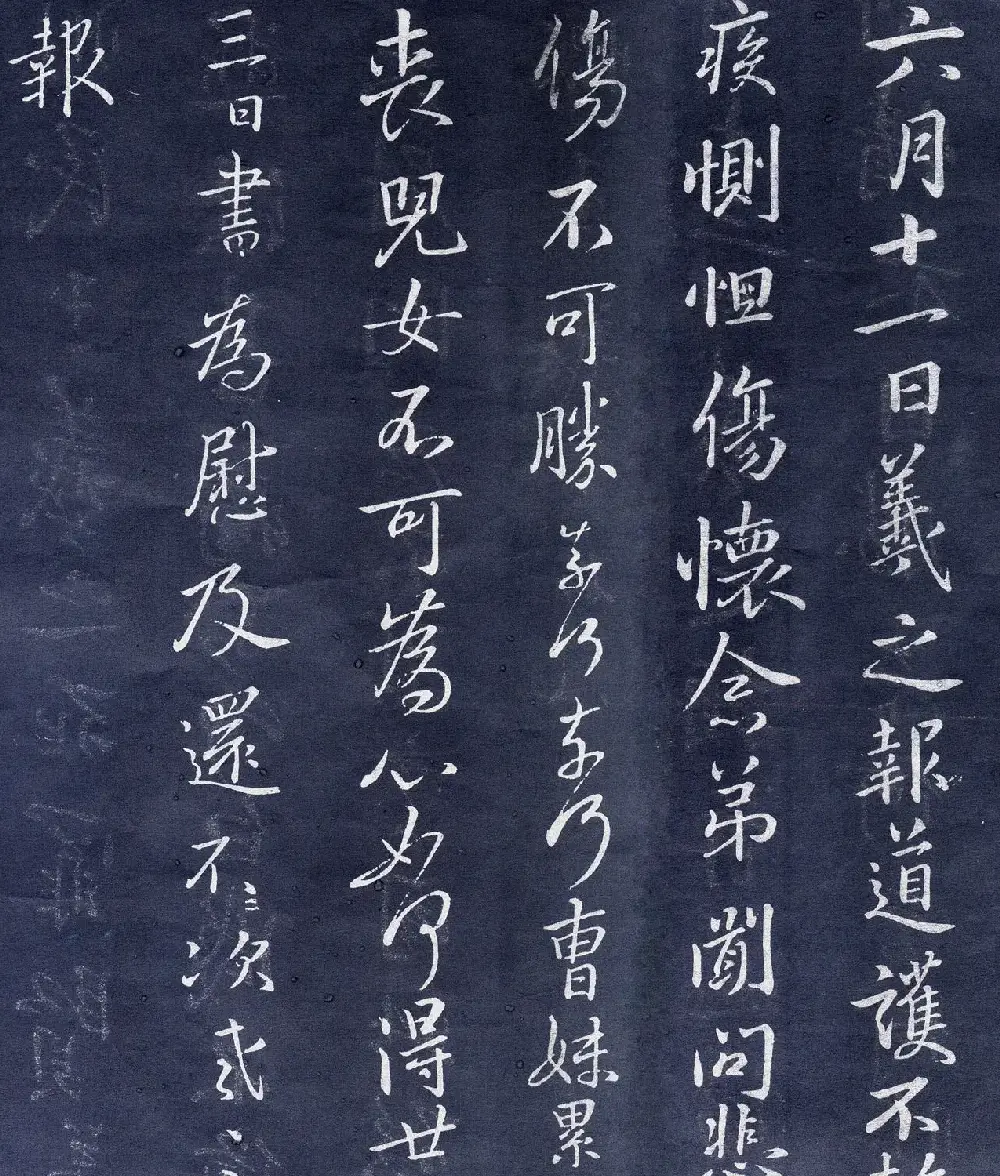 六月十一日羲之報道護不
疾惻怛傷懷念弟聞問悲
傷不可勝奈何奈何曹妹累
喪兒女不可為心如何得廿
三日書為慰及還不〻次羲
報